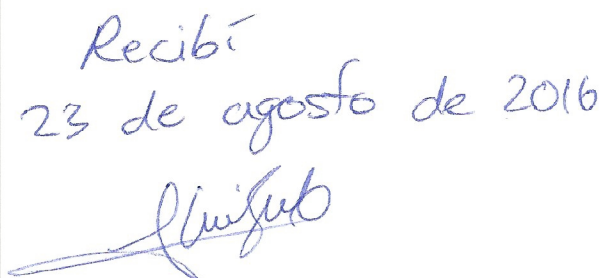 Recibí
23 de agosto de 2016